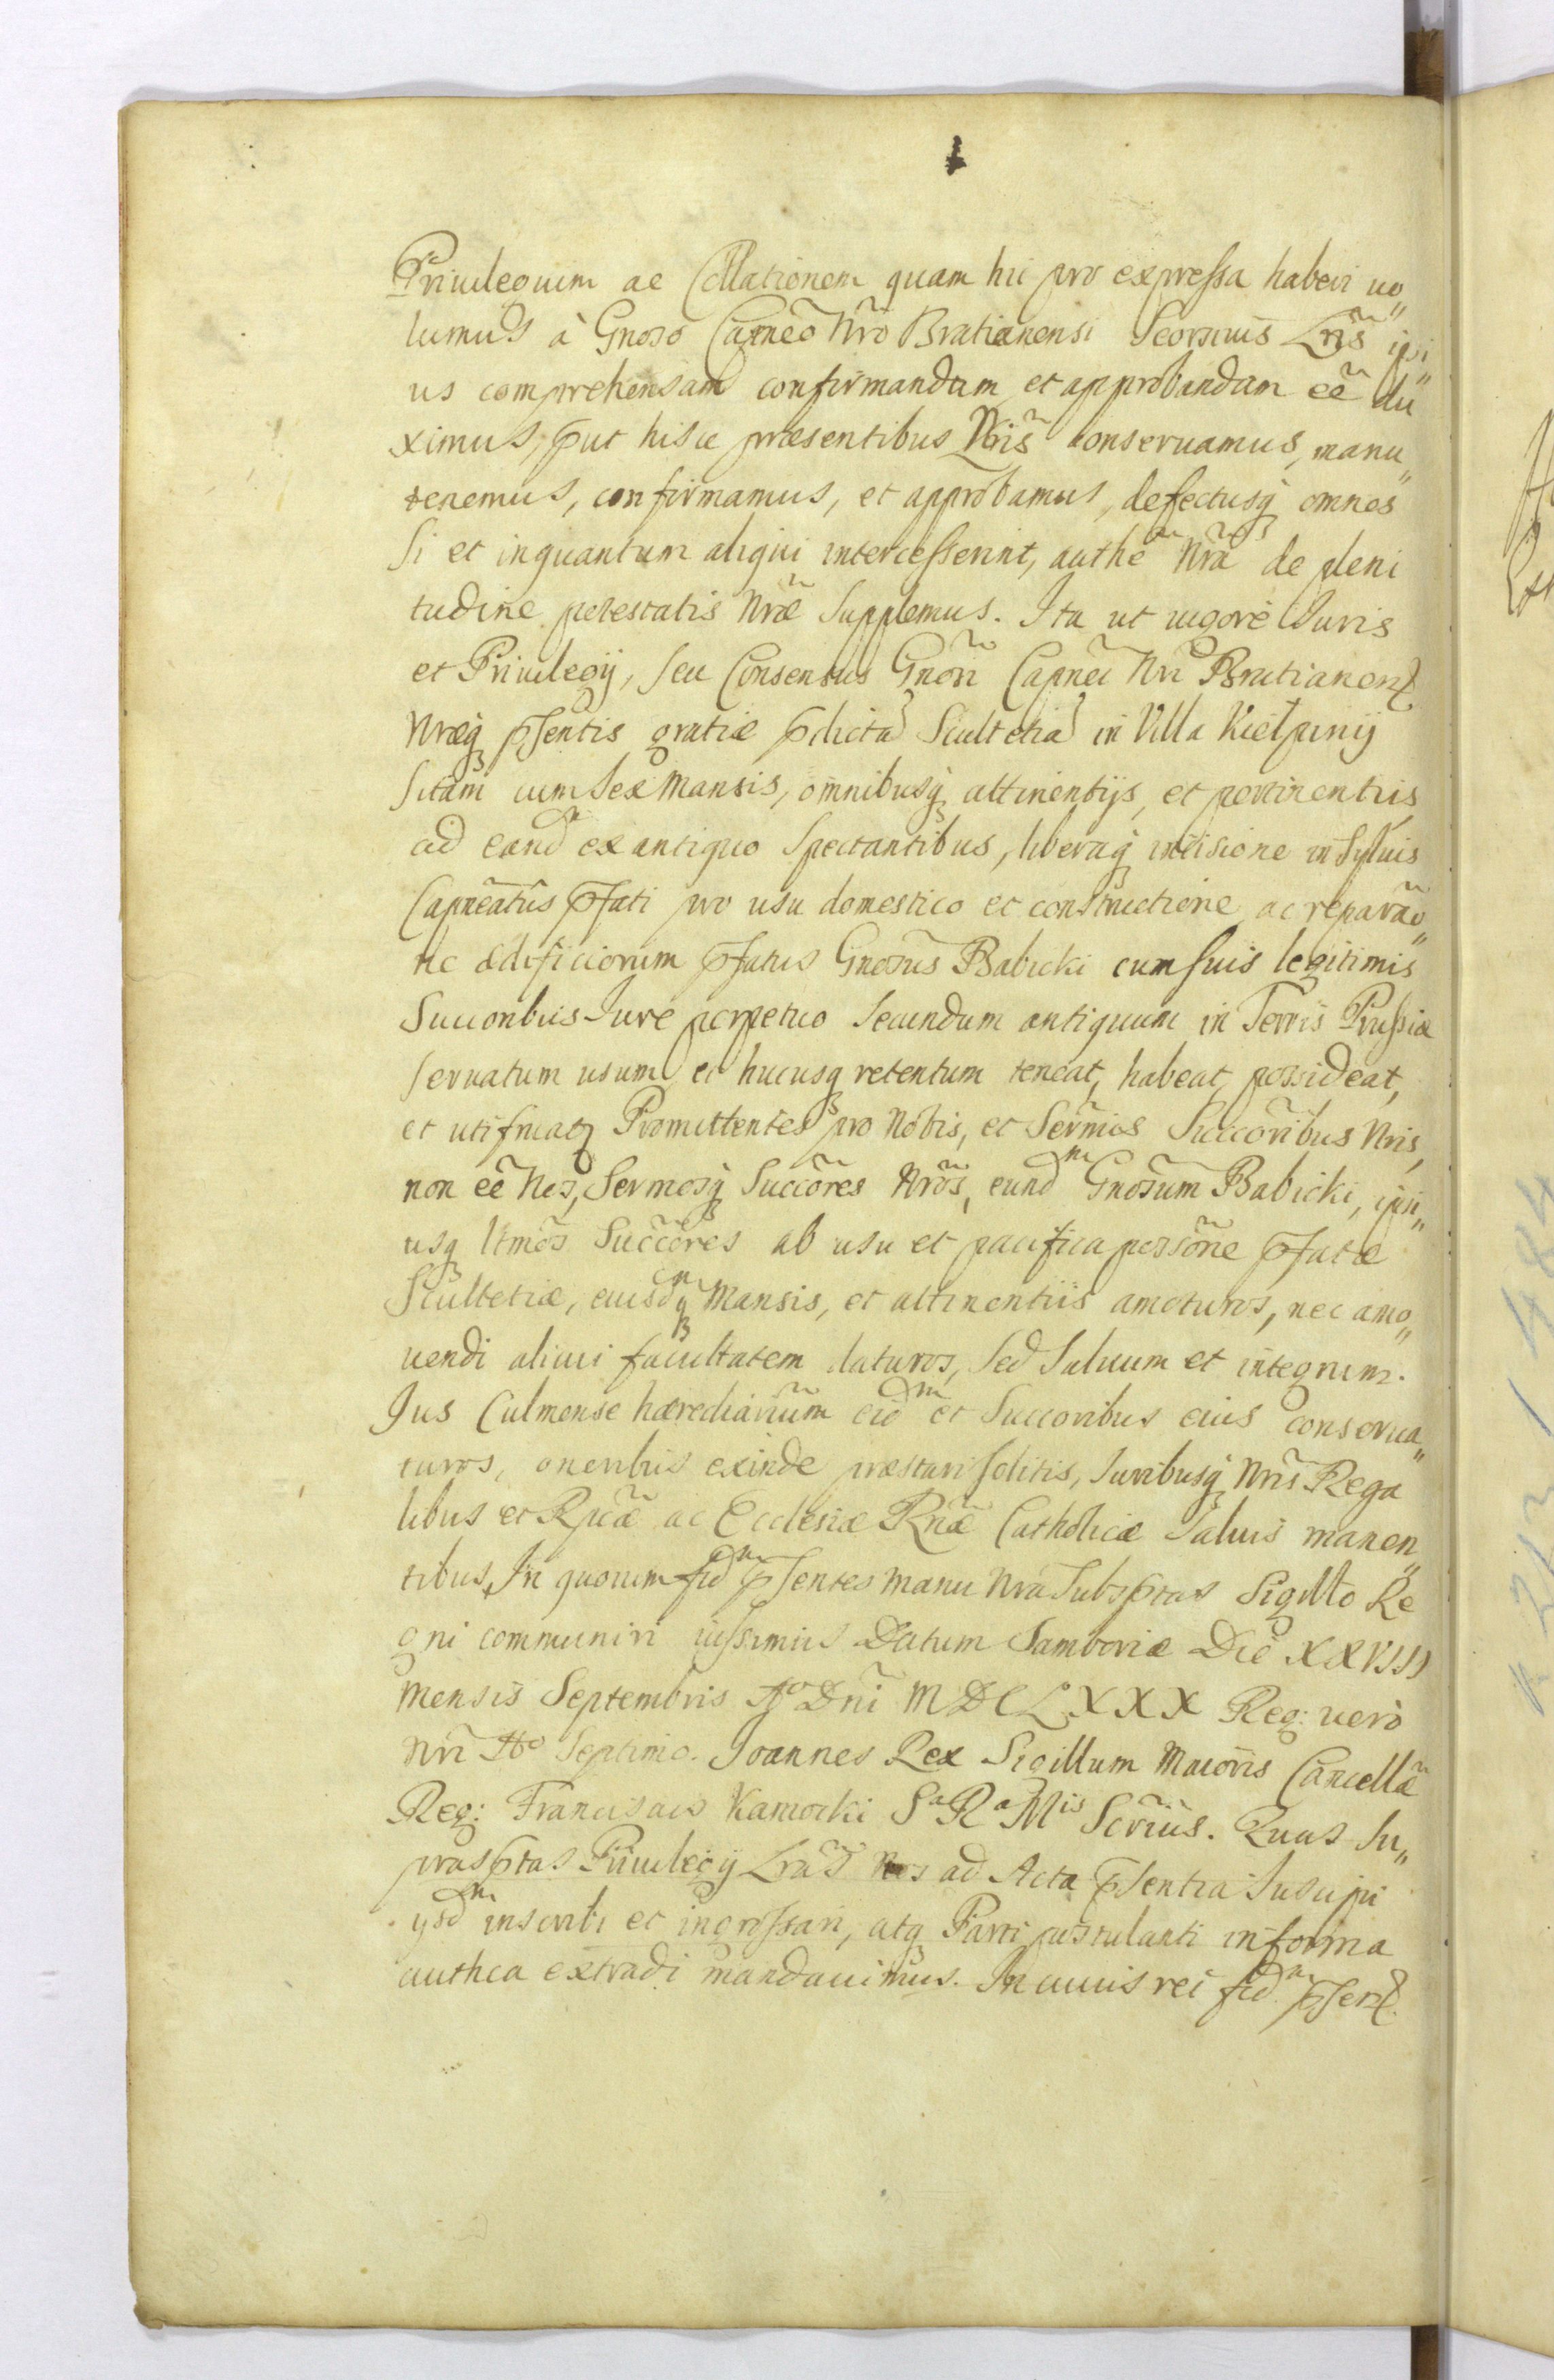 Priuilegium ac Collationem quam hic pro expressa haberi uo„
lumus à Gnoso Capneo Nro Bratianensi Seorsiuis Lris ipsi„
us comprehensam confirmandam et approbandam ee du„
ximus, put hisce præsentibus Lris conseruamus, manu„
tenemus, confirmamus, et approbamus, defectusq omnes
si et inquantum aliqui intercesserint, authe Nra de pleni
tudine potestatis Nræ Supplemus. Ita ut uigore Juris
et Priuilegij, seu Consensus Gnosi Capnei Nri Bratianen
Nræq psentis gratiæ pdicta Scultetia in Villa Kiełpiny
sitam cum sex Mansis, omnibusq attinentijs, et pertinentiis
ad eand ex antiquo Spectantibus, liberaq incisione in Syluis
Capneatus pfati pro usu domestico et constructione ac reparao„
ne ædificiorum pfatus Gnosus Babicki cum suis legitimis
Succoribus Jure perpetuo Secundum antiquum in Terris Prussiæ
seruatum usum et hucusq retentum teneat, habeat, possideat,
et utifruatq Promittentes pro Nobis, et Sermis Succoribus Nris,
non ee Nos, Sermosq Succores Nros, eundm Gnosum Babicki, ipsi„
usq ltmos Succores ab usu et pacifica possone pfatæ
Scultetiæ, eiusdmq Mansis, et attinentiis amoturos, nec amo„
uendi alicui facultatem daturos, Sed Saluum et integrum.
Jus Culmense hærediarium eidm et Succoribus eius conserua„
turos, oneribus exinde præstari solitis, Juribusq Nris Rega
libus et Rpcæ ac Ecclesiæ Rnæ Catholicæ Saluis manen„
tibus, In quorum fidm psentes manu Nra Subsptas Sigillo Re
gni communiri iussimus Datum Samboriæ Die XXVIII
Mensis Septembris Ao Dni MDCLXXX Reg: uero
Nri Ao Septimo. Joannes Rex Sigillum Maioris Cancellæ
Reg: Franciscus Kamocki Sa Ra Mis Scrius. Quas Su„
prasptas Priuilegij Lras Nos ad Acta psentia Suscipi
ysdm inscribi et ingrossari, atq Parti postulanti in forma
authca extradi mandauimus. In cuius rei fidm psen